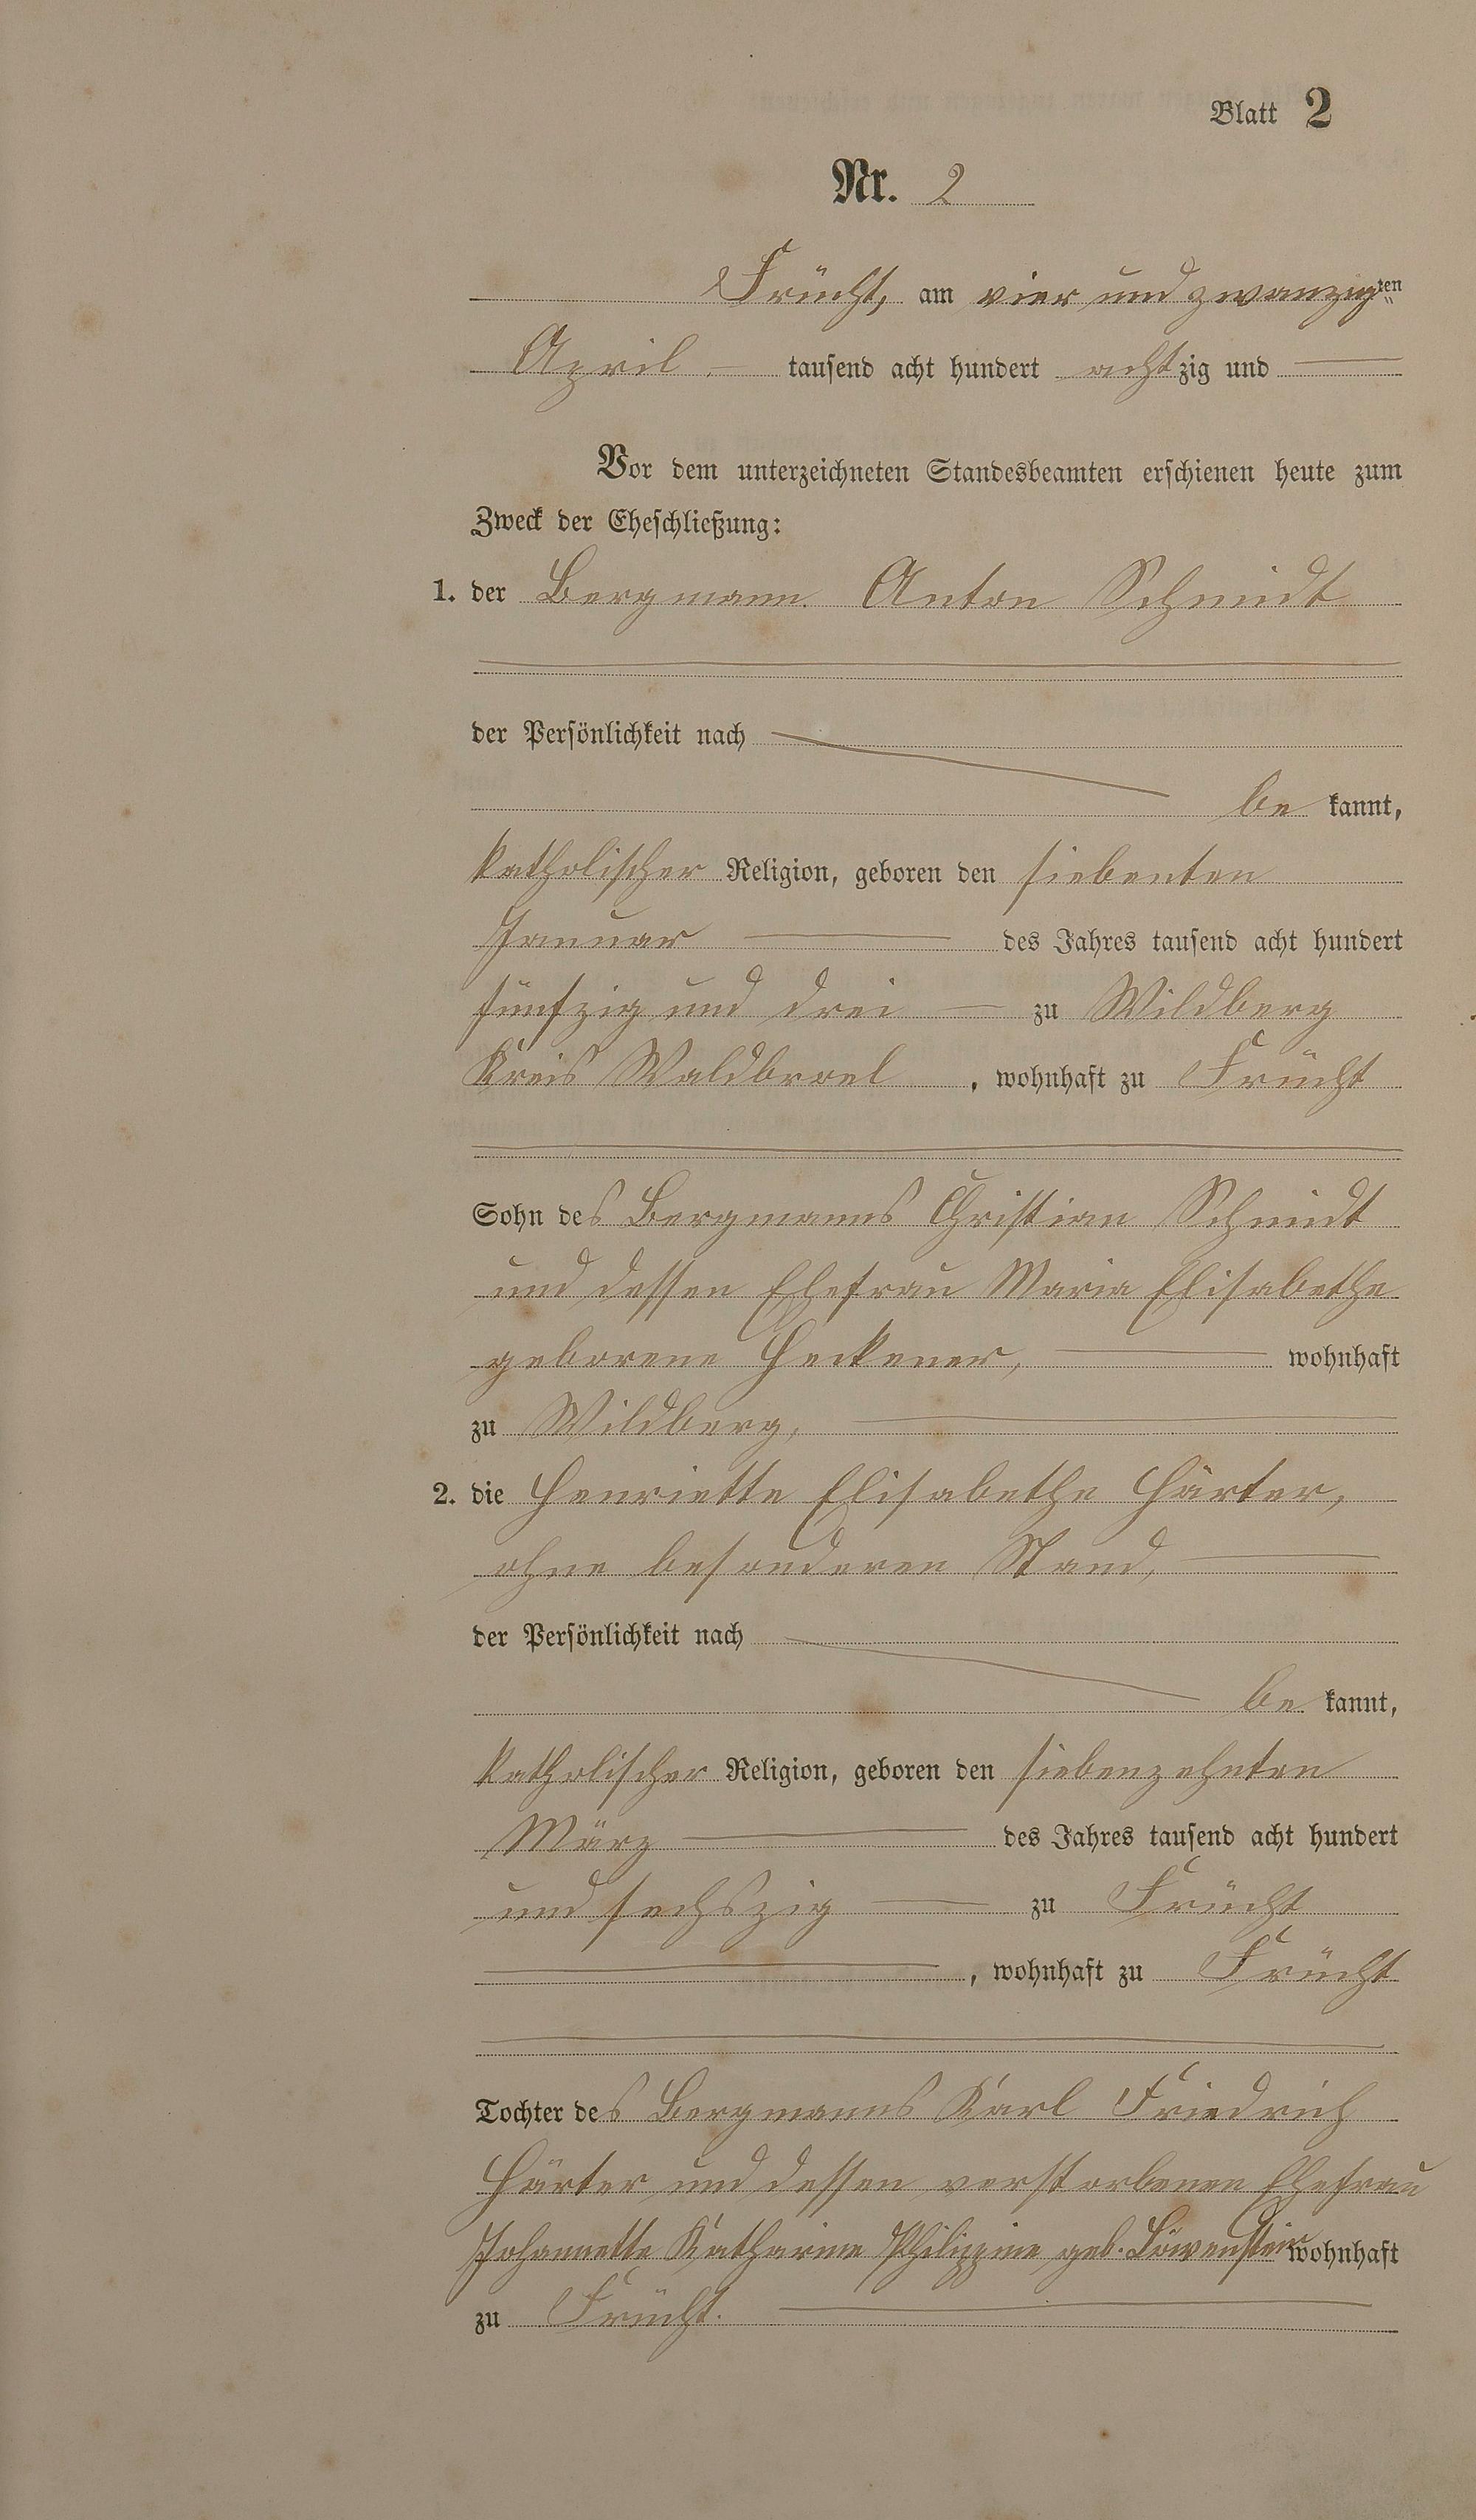 Blatt 2
Nr. 2
Frücht, am vier und zwanzigsten
April tausend acht hundert achtzig und
Vor dem unterzeichneten Standesbeamten erschienen heute zum
Zweck der Eheschließung:
1. der Bergmann Anton Schmidt
der Persönlichkeit nach
be kannt,
katholischer Religion, geboren den siebenten
Januar des Jahres tausend acht hundert
fünfzig und drei zu Wildberg
Kreis Waldbroel, wohnhaft zu Frücht
Sohn des Bergmanns Christian Schmidt
und dessen Ehefrau Maria Elisabethe
geborene Heckener, wohnhaft
zu Wildberg,
2. die Henriette Elisabethe Härter,
ohne besonderen Stand,
der Persönlichkeit nach
be kannt,
katholischer Religion, geboren den siebenzehnten
März des Jahres tausend acht hundert
und sechszig zu Frücht
, wohnhaft zu Frücht
Tochter des Bergmanns Karl Friedrich
Härter und dessen verstorbenen Ehefrau
Johannette Katharine Philippine geb. Löwenstein wohnhaft
zu Frücht.